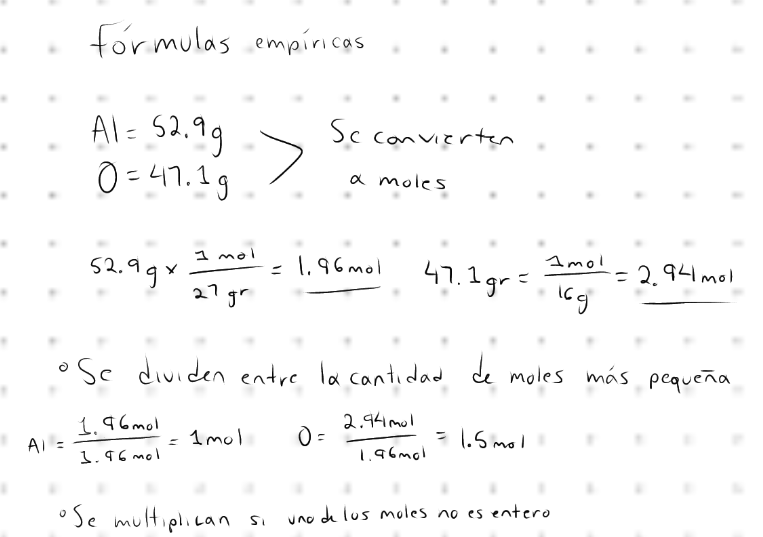 fórmulas empíricas
Al = 52.9g
O = 47.1g
Se convierten
a moles
52.9g x 1 mol / 27 gr = 1.96mol 47.1gr = 1mol / 16g = 2.94mol
° Se dividen entre la cantidad de moles más pequeña
Al = 1.96mol / 1.96mol = 1mol O = 2.94mol / 1.96mol = 1.5mol
° Se multiplican si uno de los moles no es entero